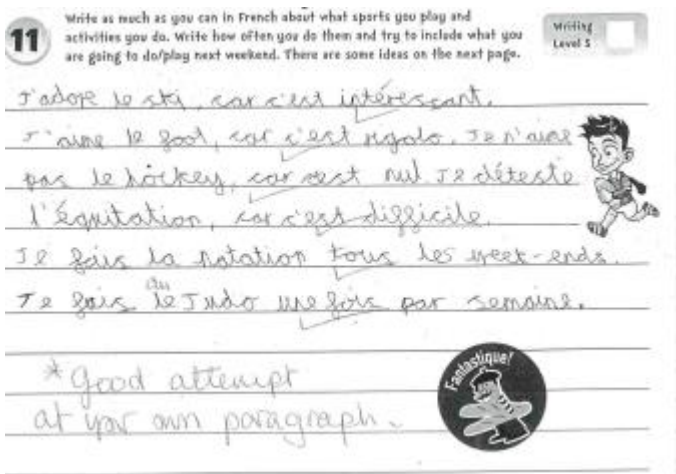 Write as much as you can in French about what sports you play and
11 activities you do. Write how often you do them and try to include what you
are going to do/play next weekend. There are some ideas on the next page.
Writing
Level 5
J'adore le ski, car c'est intéressant.
J'aime le foot, car c'est rigolo. Je n'aime
pas le hockey, car c'est nul Je déteste
l'équitation, car c'est difficile.
Je fais la natation tous les week-ends.
du
Je fais le Judo une fois par semaine.
Fantastique!
* Good attempt
at your own paragraph.